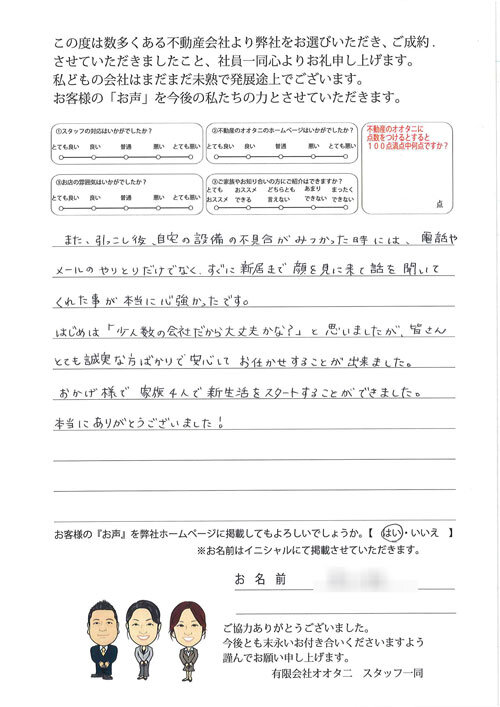 この度は数多くある不動産会社より弊社をお選びいただき、ご成約、
させていただきましたこと、社員一同心よりお礼申し上げます。
私どもの会社はまだまだ未熟で発展途上でございます。
お客様の「お声」を今後の私たちの力とさせていただきます。
①スタッフの対応はいかがでしたか?
とても良い 良い 普通 悪い とても悪い
②不動産のオオタニのホームページはいかがでしたか?
とても良い 良い 普通 悪い とても悪い
③お店の雰囲気はいかがでしたか?
とても良い 良い 普通 悪い とても悪い
③ご家族やお知り合いの方にご紹介はできますか?
とても オススメ どちらとも あまり まったく
オススメ できる 言えない できない できない
不動産のオオタニに
点数をつけるとすると
100点満点中何点ですか?
点
また、引っこし後、自宅の設備の不具合がみつかった時には、電話や
メールのやりとりだけでなく、すぐに新居まで顔を見に来て話を聞いて
くれた事が本当に心強かったです。
はじめは「少人数の会社だから大丈夫かな?」と思いましたが、皆さん
とても誠実な方ばかりで安心してお任せすることが出来ました。
おかげ様で家族4人で新生活をスタートすることができました。
本当にありがとうございました!
お客様の『お声』を弊社ホームページに掲載してもよろしいでしょうか。【 はい・いいえ 】
※お名前はイニシャルにて掲載させていただきます。
お名前
ご協力ありがとうございました。
今後とも末永いお付き合いくださいますよう
謹んでお願い申し上げます。
有限会社オオタニ スタッフ一同